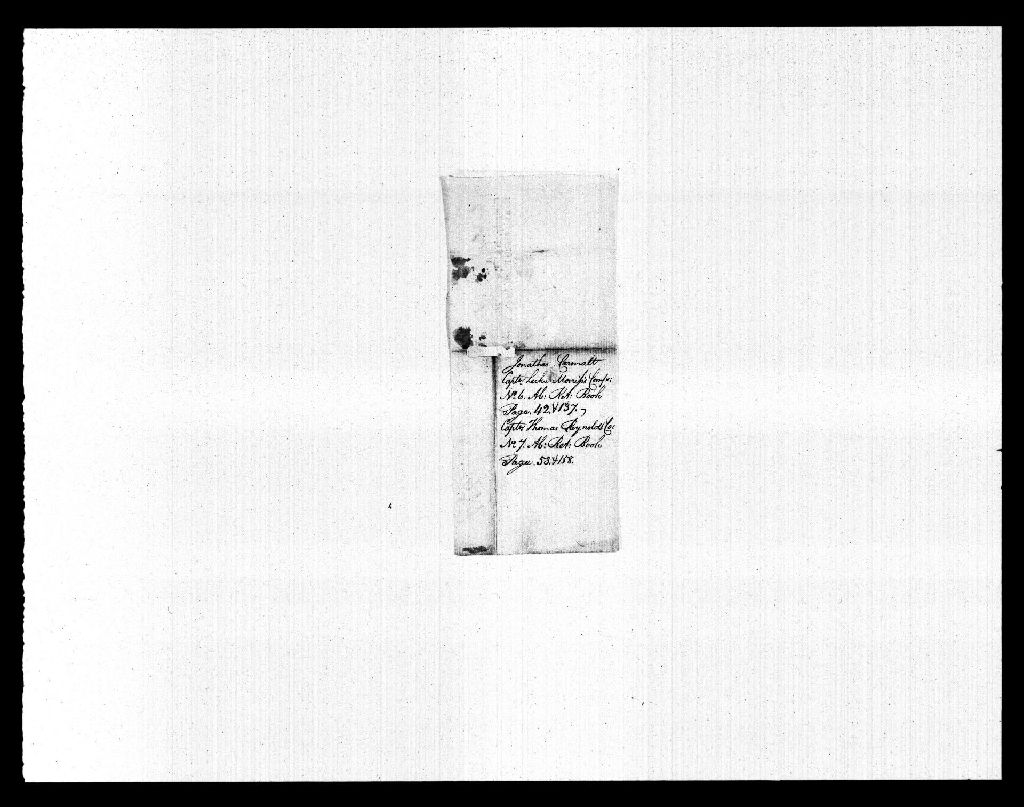 Jonathan Cormalt
Captn. Morris's Compy.
No. 6. Ab: Ret: Book
Page. 42. & 137.
Captn. Thomas Reynolds Co:
No. 7. Ab: Ret: Book
Page. 53. & 158.